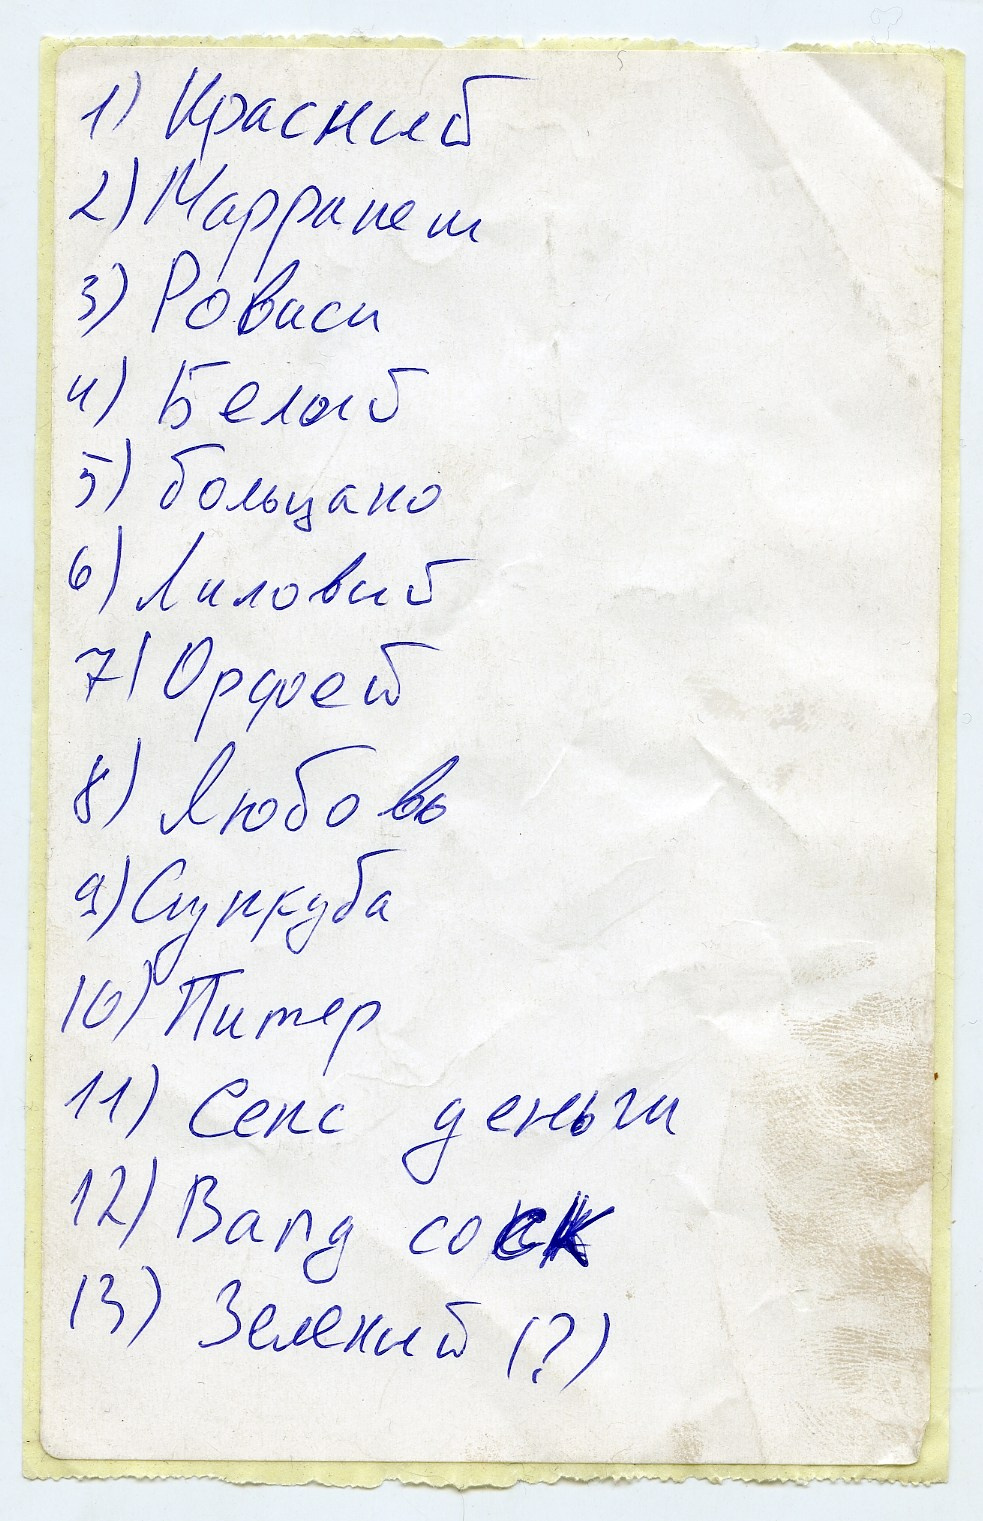 1) Красний
2) Марракеш
3) Роваси
4) Белый
5) больцано
6) Лиловий
7) Орфей
8) Любовь
9) Сункуба
10) Питер
11) Секс деньги
12) Вапд соск
13) Зелений (?)